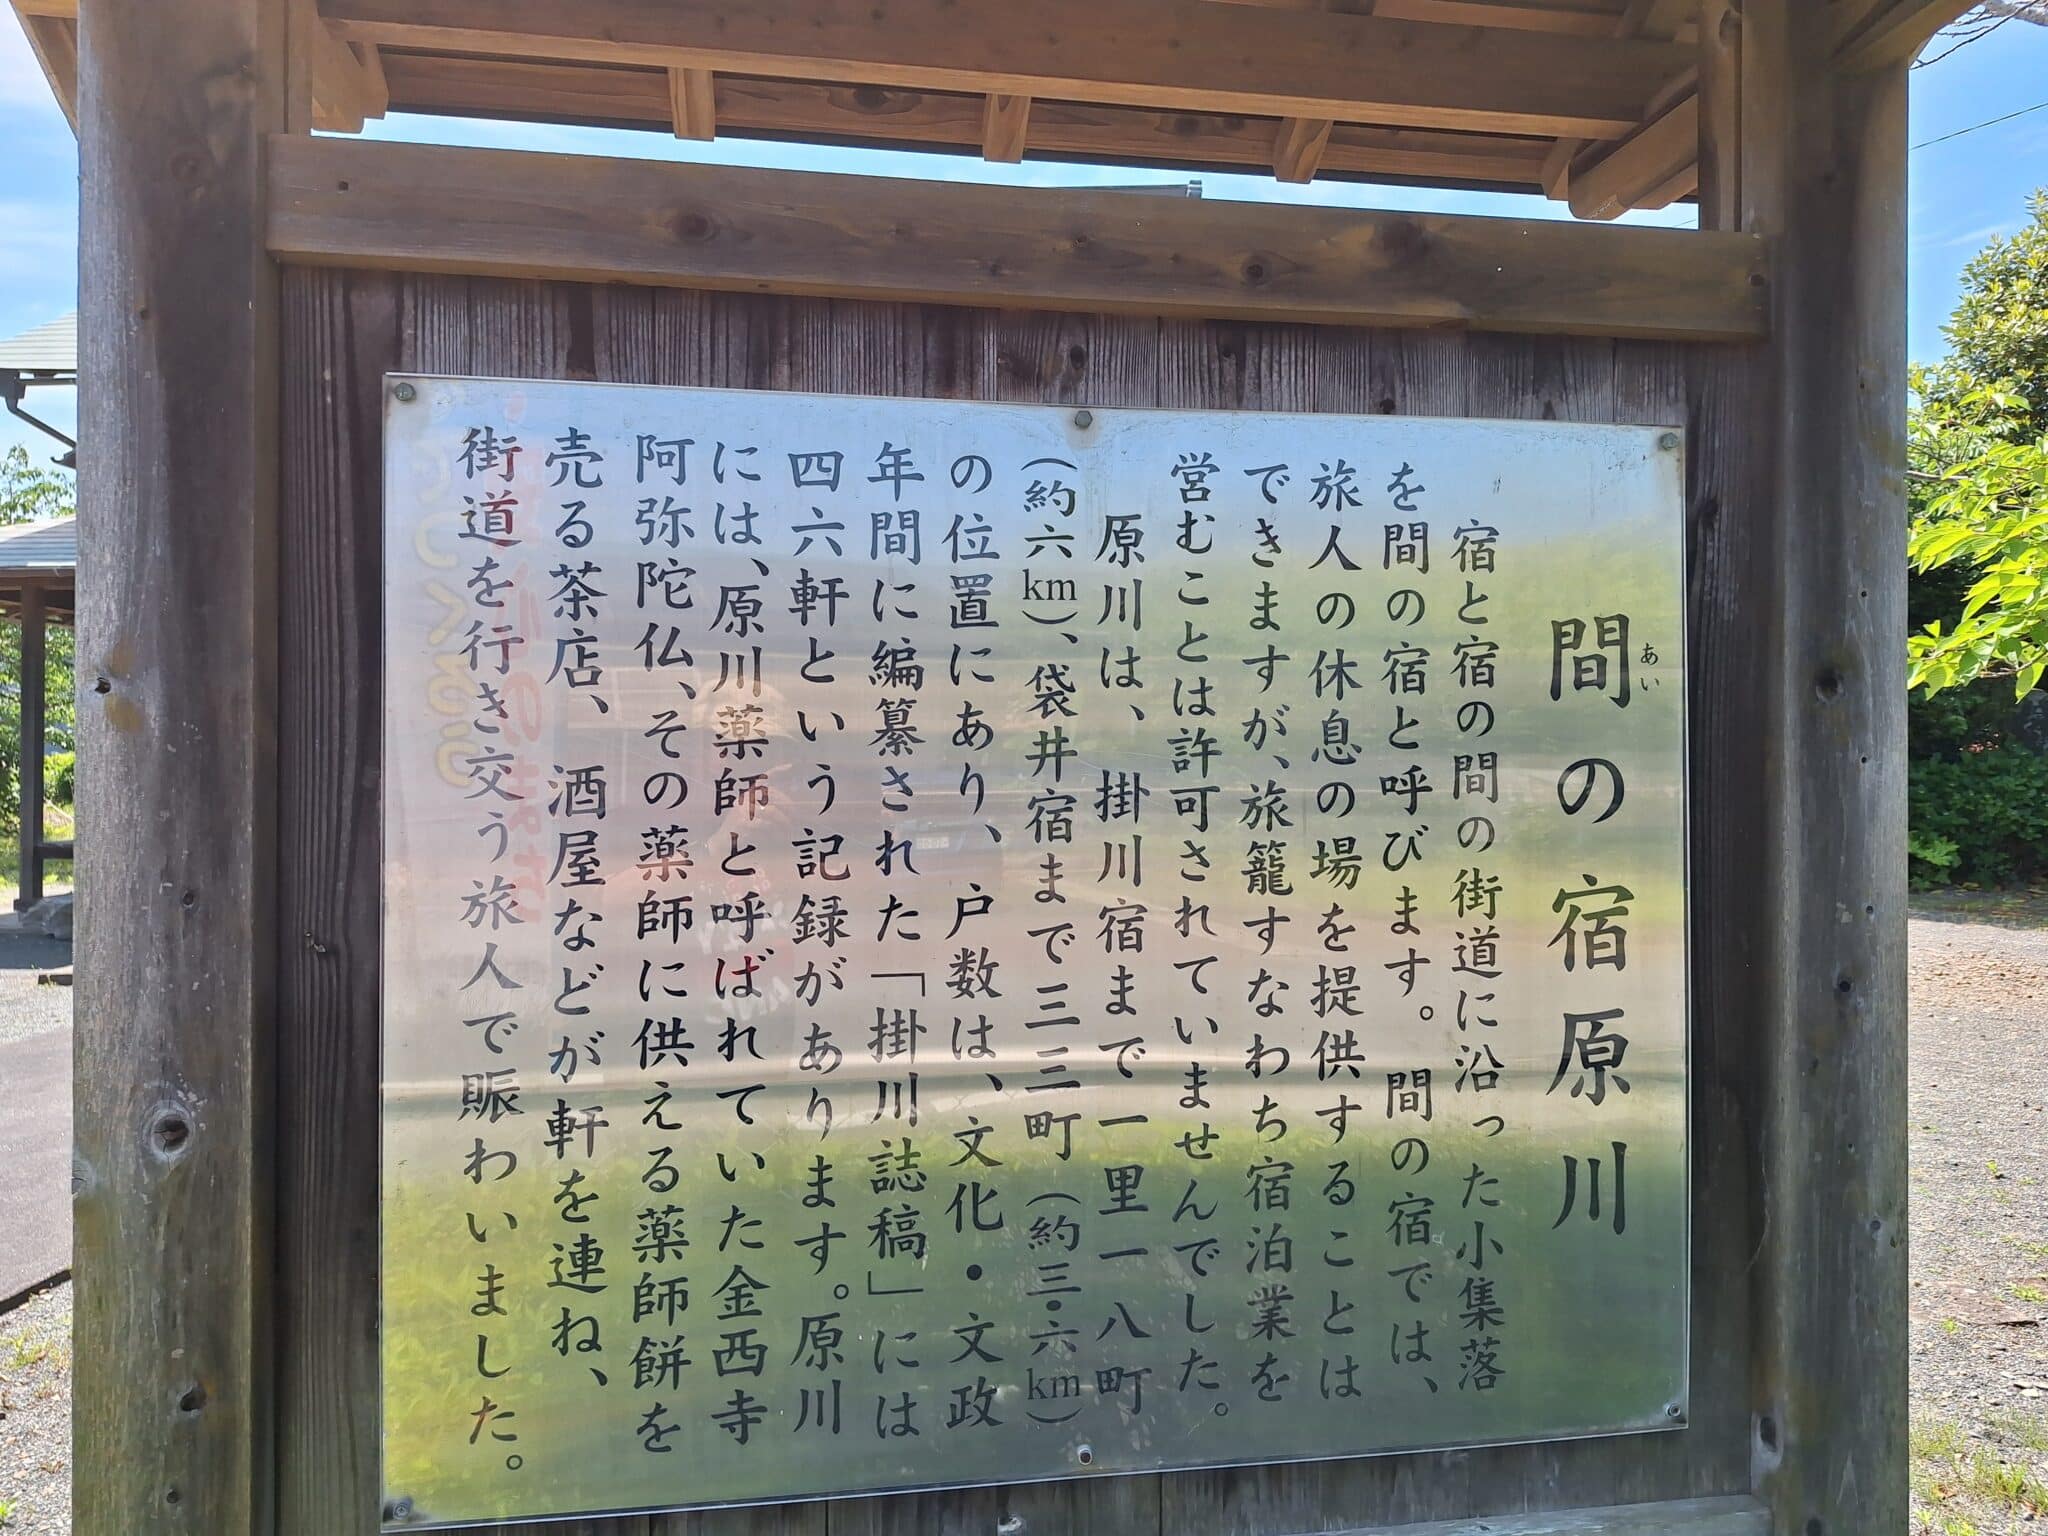 間の宿原川
あい
宿と宿の間の街道に沿った小集落
を間の宿と呼びます。間の宿では、
旅人の休息の場を提供することは
できますが、旅籠すなわち宿泊業を
営むことは許可されていませんでした。
原川は、掛川宿まで一里一八町
(約六km)、袋井宿まで三三町(約三・六km)
の位置にあり、戸数は、文化・文政
年間に編纂された「掛川誌稿」には
四六軒という記録があります。原川
には、原川薬師と呼ばれていた金西寺
阿弥陀仏、その薬師に供える薬師餅を
売る茶店、酒屋などが軒を連ね、
街道を行き交う旅人で賑わいました。